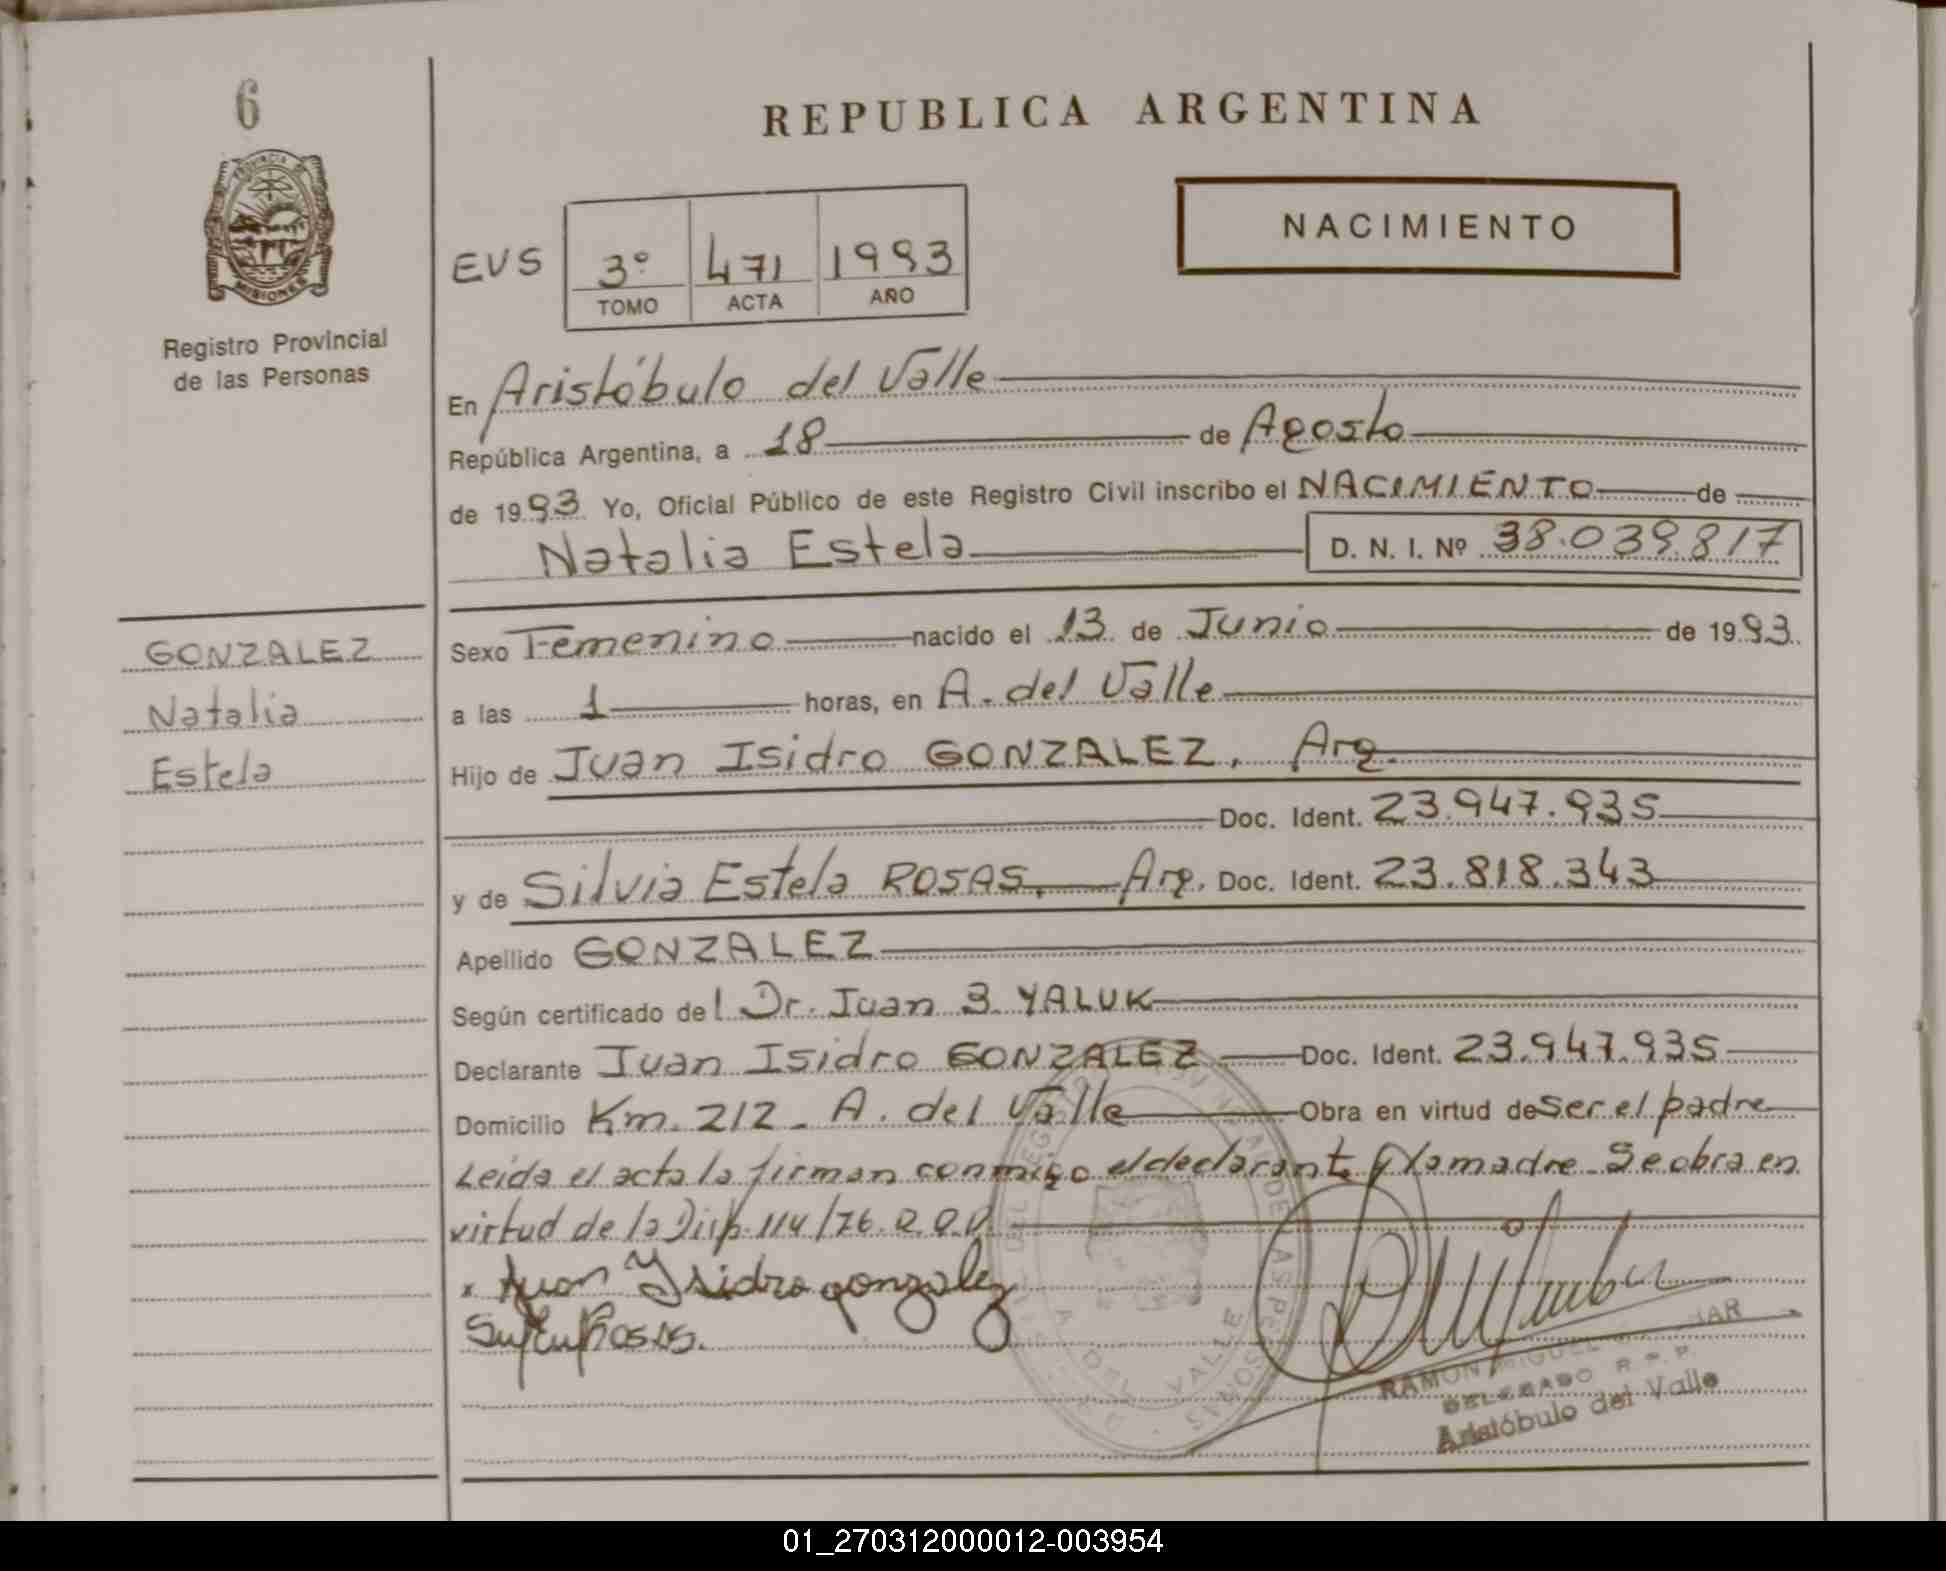 6
REPUBLICA ARGENTINA
PROVINCIA DE
MISIONES
Registro Provincial
de las Personas
NACIMIENTO
EVS 3º 471 1993
TOMO ACTA AÑO
En Aristóbulo del Valle
República Argentina, a 18 de Agosto
de 1993 Yo, Oficial Público de este Registro Civil inscribo el NACIMIENTO de
Natalia Estela D. N. I. Nº 38.039.817
GONZALEZ
Natalia
Estela
Sexo Femenino nacido el 13 de Junio de 1993.
a las 1 horas, en A. del Valle
Hijo de Juan Isidro GONZALEZ. Arg.
Doc. Ident. 23.947.935
y de Silvia Estela ROSAS. Arg. Doc. Ident. 23.818.343
Apellido GONZALEZ
Según certificado del Dr. Juan B. YALUK
Declarante Juan Isidro GONZALEZ Doc. Ident. 23.947.935
Domicilio Km. 212 - A. del Valle Obra en virtud de ser el padre
Leida el acta la firman conmigo el declarante y la madre. Se obra en
virtud de la Disp. 114/76.
x Juan Ysidro gonzalez
Rosas.
RAMON MIGUEL
DELEGADO R.P.P.
Aristóbulo del Valle
A. DEL VALLE
01_270312000012-003954